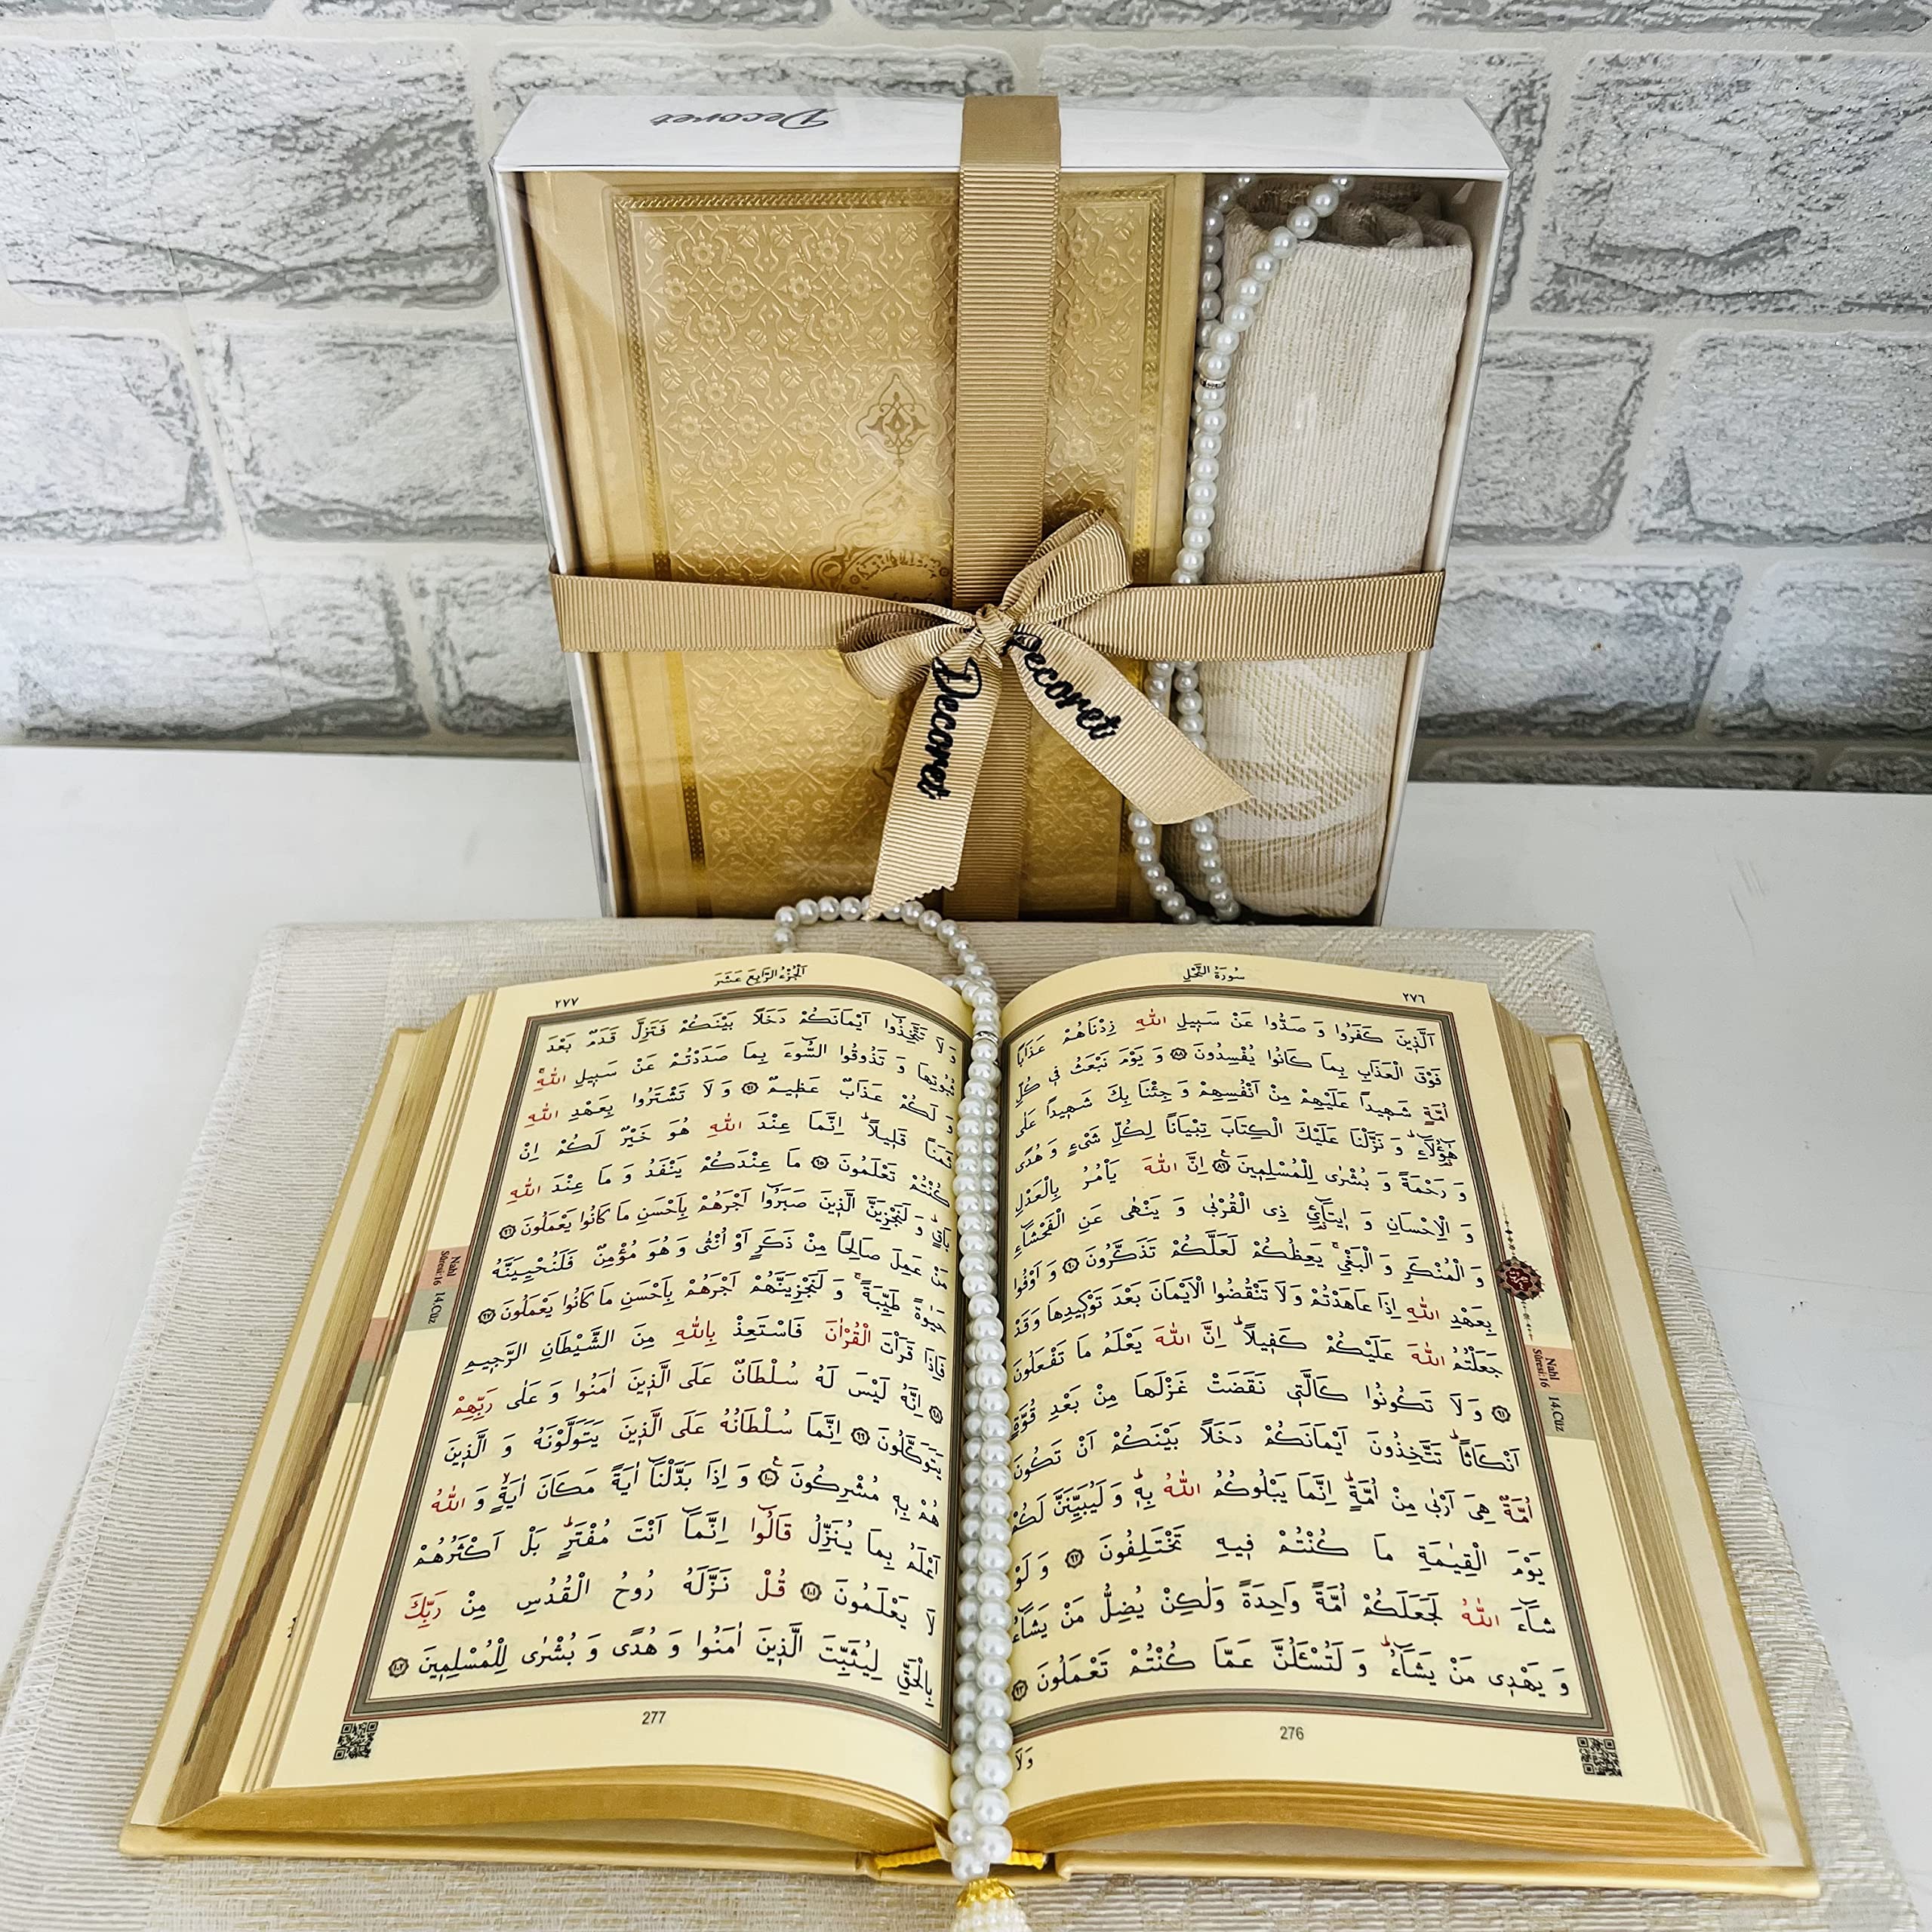 Decoret
Decoret
Decoret
سورة النحل
٢٧٦
اَلَّذ۪ينَ كَفَرُوا وَ صَدُّوا عَنْ سَب۪يلِ اللّٰهِ زِدْنَاهُمْ عَذَاباً
فَوْقَ الْعَذَابِ بِمَا كَانُوا يُفْسِدُونَ ﴿٨٨﴾ وَ يَوْمَ نَبْعَثُ ف۪ي كُلِّ
اُمَّةٍ شَه۪يداً عَلَيْهِمْ مِنْ اَنْفُسِهِمْ وَ جِئْنَا بِكَ شَه۪يداً عَلٰى
هٰٓؤُ۬لَٓاءِۜ وَ نَزَّلْنَا عَلَيْكَ الْكِتَابَ تِبْيَاناً لِكُلِّ شَيْءٍ وَ هُدًى
وَ رَحْمَةً وَ بُشْرٰى لِلْمُسْلِم۪ينَ ﴿٨٩﴾ اِنَّ اللّٰهَ يَأْمُرُ بِالْعَدْلِ
وَ الْاِحْسَانِ وَ ا۪يتَٓائِ ذِي الْقُرْبٰى وَ يَنْهٰى عَنِ الْفَحْشَٓاءِ
وَ الْمُنْكَرِ وَ الْبَغْيِۚ يَعِظُكُمْ لَعَلَّكُمْ تَذَكَّرُونَ ﴿٩٠﴾ وَ اَوْفُوا
بِعَهْدِ اللّٰهِ اِذَا عَاهَدْتُمْ وَ لَا تَنْقُضُوا الْاَيْمَانَ بَعْدَ تَوْك۪يدِهَا وَ قَدْ
جَعَلْتُمُ اللّٰهَ عَلَيْكُمْ كَف۪يلاًۜ اِنَّ اللّٰهَ يَعْلَمُ مَا تَفْعَلُونَ
﴿٩١﴾ وَ لَا تَكُونُوا كَالَّت۪ي نَقَضَتْ غَزْلَهَا مِنْ بَعْدِ قُوَّةٍ
اَنْكَاثاًۜ تَتَّخِذُونَ اَيْمَانَكُمْ دَخَلاً بَيْنَكُمْ اَنْ تَكُونَ
اُمَّةٌ هِيَ اَرْبٰى مِنْ اُمَّةٍۜ اِنَّمَا يَبْلُوكُمُ اللّٰهُ بِه۪ۜ وَ لَيُبَيِّنَنَّ لَكُمْ
يَوْمَ الْقِيٰمَةِ مَا كُنْتُمْ ف۪يهِ تَخْتَلِفُونَ ﴿٩٢﴾ وَ لَوْ
شَٓاءَ اللّٰهُ لَجَعَلَكُمْ اُمَّةً وَاحِدَةً وَلٰكِنْ يُضِلُّ مَنْ يَشَٓاءُ
وَ يَهْد۪ي مَنْ يَشَٓاءُۜ وَ لَتُسْـَٔلُنَّ عَمَّا كُنْتُمْ تَعْمَلُونَ ﴿٩٣﴾
276
وَلَا
Nahl
Sûresi:16
14.Cüz
اَلْجُزْءُ الرَّابِعَ عَشَرَ
٢٧٧
وَ لَا تَتَّخِذُٓوا اَيْمَانَكُمْ دَخَلاً بَيْنَكُمْ فَتَزِلَّ قَدَمٌ بَعْدَ
ثُبُوتِهَا وَ تَذُوقُوا السُّٓوءَ بِمَا صَدَدْتُمْ عَنْ سَب۪يلِ اللّٰهِۚ
وَ لَكُمْ عَذَابٌ عَظ۪يمٌ ﴿٩٤﴾ وَ لَا تَشْتَرُوا بِعَهْدِ اللّٰهِ
ثَمَناً قَل۪يلاًۜ اِنَّمَا عِنْدَ اللّٰهِ هُوَ خَيْرٌ لَكُمْ اِنْ
كُنْتُمْ تَعْلَمُونَ ﴿٩٥﴾ مَا عِنْدَكُمْ يَنْفَدُ وَ مَا عِنْدَ اللّٰهِ
بَاقٍۜ وَ لَنَجْزِيَنَّ الَّذ۪ينَ صَبَرُٓوا اَجْرَهُمْ بِاَحْسَنِ مَا كَانُوا يَعْمَلُونَ ﴿٩٦﴾
مَنْ عَمِلَ صَالِحاً مِنْ ذَكَرٍ اَوْ اُنْثٰى وَ هُوَ مُؤْمِنٌ فَلَنُحْيِيَنَّهُ
حَيٰوةً طَيِّبَةًۚ وَ لَنَجْزِيَنَّهُمْ اَجْرَهُمْ بِاَحْسَنِ مَا كَانُوا يَعْمَلُونَ ﴿٩٧﴾
فَاِذَا قَرَأْتَ الْقُرْاٰنَ فَاسْتَعِذْ بِاللّٰهِ مِنَ الشَّيْطَانِ الرَّج۪يمِ
﴿٩٨﴾ اِنَّهُ لَيْسَ لَهُ سُلْطَانٌ عَلَى الَّذ۪ينَ اٰمَنُوا وَ عَلٰى رَبِّهِمْ
يَتَوَكَّلُونَ ﴿٩٩﴾ اِنَّمَا سُلْطَانُهُ عَلَى الَّذ۪ينَ يَتَوَلَّوْنَهُ وَ الَّذ۪ينَ
هُمْ بِه۪ مُشْرِكُونَ ﴿١٠٠﴾ وَ اِذَا بَدَّلْنَٓا اٰيَةً مَكَانَ اٰيَةٍۙ وَ اللّٰهُ
اَعْلَمُ بِمَا يُنَزِّلُ قَالُٓوا اِنَّمَٓا اَنْتَ مُفْتَرٍۜ بَلْ اَكْثَرُهُمْ
لَا يَعْلَمُونَ ﴿١٠١﴾ قُلْ نَزَّلَهُ رُوحُ الْقُدُسِ مِنْ رَبِّكَ
بِالْحَقِّ لِيُثَبِّتَ الَّذ۪ينَ اٰمَنُوا وَ هُدًى وَ بُشْرٰى لِلْمُسْلِم۪ينَ ﴿١٠٢﴾
277
Nahl
Sûresi:16
14.Cüz